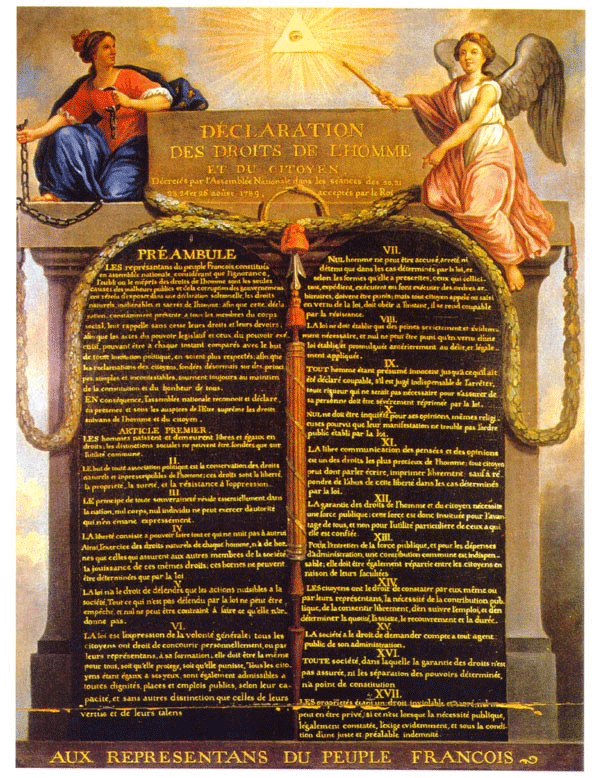 DÉCLARATION
DES DROITS DE L'HOMME
ET DU CITOYEN,
Décretés par l'Assemblée Nationale dans les séances des 20, 21
23, 24 et 26 aoust 1789, acceptés par le Roi
PRÉAMBULE
LES représentans du peuple François, constitués
en assemblée nationale, considérant que l'ignorance,
l'oubli ou le mépris des droits de l'homme sont les seules
causes des malheurs publics et de la corruption des gouvernemens
ont résolu d'exposer dans une déclaration solemnelle, les droits
naturels, inaliénables et sacrés de l'homme; afin que cette décla-
ration, constamment présente a tous les membres du corps
social, leur rappelle sans cesse leurs droits et leurs devoirs;
afin que les actes du pouvoir législatif et ceux du pouvoir exé-
cutif, pouvant être a chaque instant comparés avec le but
de toute institution politique, en soient plus respectés; afin que
les réclamations des citoyens, fondées désormais sur des prin-
cipes simples et incontestables, tournent toujours au maintien
de la constitution et du bonheur de tous.
EN conséquence, l'assemblée nationale reconnoit et déclare,
en présence et sous les auspices de l'Etre suprême les droits
suivans de l'homme et du citoyen.
ARTICLE PREMIER.
LES hommes naissent et demeurent libres et égaux en
droits; les distinctions sociales ne peuvent être fondées que sur
l'utilité commune.
II.
LE but de toute association politique est la conservation des droits
naturels et inprescriptibles de l'homme; ces droits sont la liberté
la propriété, la sureté, et la résistance à l'oppression.
III.
LE principe de toute souveraineté réside essentiellement dans
la nation, nul corps, nul individu ne peut exercer d'autorité
qui n'en émane expressement.
IV
LA liberté consiste à pouvoir faire tout ce qui ne nuit pas à autrui
Ainsi, l'exercice des droits naturels de chaque homme, n'a de bor-
nes que celles qui assurent aux autres membres de la société
la jouissance de ces mêmes droits; ces bornes ne peuvent
être déterminées que par la loi
V.
LA loi n'a le droit de défendre que les actions nuisibles à la
société. Tout ce qui n'est pas défendu par la loi ne peut être
empêché, et nul ne peut être contraint à faire ce qu'elle n'or-
donne pas.
VI.
LA loi est l'expression de la volonté générale; tous les
citoyens ont droit de concourir personnellement, ou par
leurs représentans, à sa formation; elle doit être la même
pour tous, soit qu'elle protege, soit qu'elle punisse, Tous les cito-
yens étant égaux à ses yeux, sont également admissibles à
toutes dignités, places et emplois publics, selon leur ca-
pacité, et sans autres distinction que celles de leurs
vertus et de leurs talens
VII.
NUL homme ne peut être accusé, arreté ni
détenu que dans les cas déterminés par la loi, et
selon les formes qu'elle a prescrites, ceux qui sollici-
tent, expédient, exécutent ou font exécuter des ordres ar-
bitraires, doivent être punis; mais tout citoyen appelé ou saisi
en vertu de la loi, doit obéir a l'instant, il se rend coupable
par la résistance.
VIII.
LA loi ne doit établir que des peines strictement et évidem-
ment nécessaire, et nul ne peut être puni qu'en vertu d'une
loi établie et promulguée antérieurement au délit, et légale-
ment appliquée.
IX.
TOUT homme étant présumé innocent jusqu'à ce qu'il ait
été déclaré coupable, s'il est jugé indispensable de l'arrêter,
toute rigueur qui ne serait pas nécessaire pour s'assurer de
sa personne doit être sévérement réprimée par la loi.
X.
NUL ne doit être inquiété pour ses opinions, mêmes religi-
euses pourvu que leur manifestation ne trouble pas l'ordre
public établi par la loi.
XI.
LA libre communication des pensées et des opinions
est un des droits les plus precieux de l'homme; tout citoyen
peut donc parler, écrire, imprimer librement: sauf à ré-
pondre de l'abus de cette liberté dans les cas déterminés
par la loi.
XII.
LA garantie des droits de l'homme et du citoyen nécessite
une force publique; cette force est donc instituée pour l'avan-
tage de tous, et non pour l'utilité particuliere de ceux a qui
elle est confiée.
XIII.
Pour l'entretien de la force publique, et pour les dépenses
d'administration, une contribution commune est indispen-
sable; elle doit être également répartie entre les citoyens en
raison de leurs facultées
XIV.
LES citoyens ont le droit de constater par eux même ou
par leurs représentans, la nécessité de la contribution pub-
lique, de la consentir librement, d'en suivre l'emploi, et d'en
déterminer la quotité, l'assiette, le recouvrement et la durée.
XV.
LA société a le droit de demander compte a tout agent
public de son administration.
XVI.
TOUTE société, dans laquelle la garantie des droits n'est
pas assurée, ni la séparation des pouvoirs déterminée,
n'a point de constitution
XVII.
LES propriétés étant un droit inviolable et sacré, nul ne
peut en être privé, si ce n'est lorsque la nécessité publique,
légalement constatée, l'exige evidemment, et sous la condi-
tion d'une juste et préalable indemnité.
AUX REPRESENTANS DU PEUPLE FRANCOIS